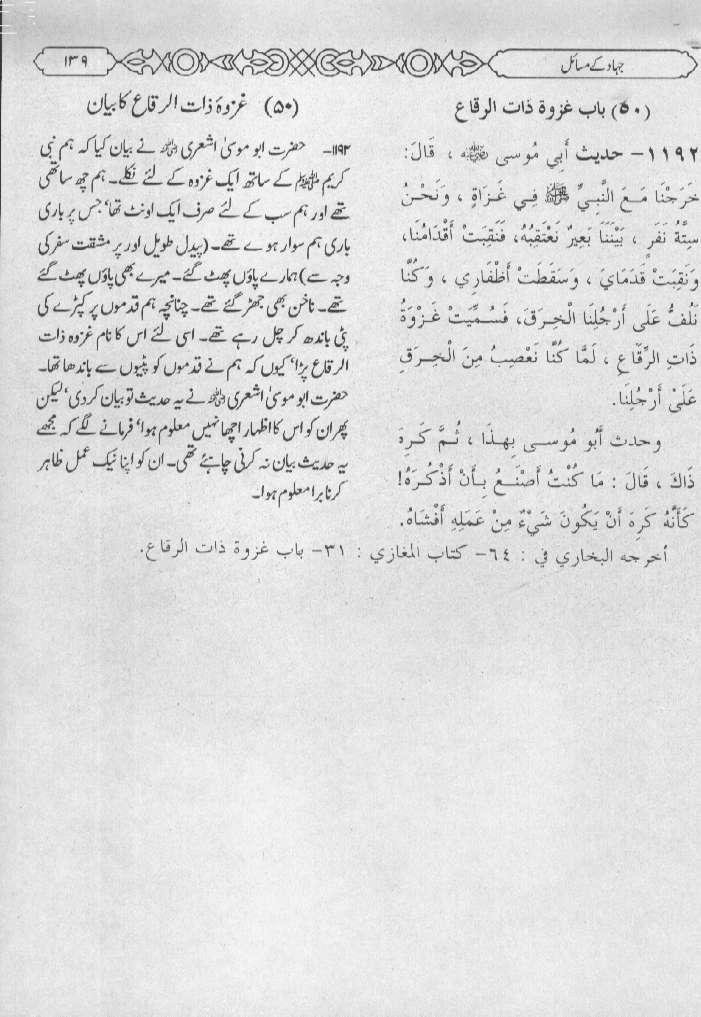 جہاد کے مسائل
۱۳۹
(٥٠) باب غزوة ذات الرقاع
١١٩٢- حديث أَبِي مُوسى ﷺ ، قَالَ:
خَرَجْنَا مَعَ النَّبِيِّ ﷺ فِي غَزَاةٍ ، وَنَحْنُ
سِتَّةُ نَفَرٍ ، بَيْنَنَا بَعِيرٌ نَعْتَقِبُهُ، فَنَقِبَتْ أَقْدَامُنَا،
وَنَقِبَتْ قَدَمَايَ ، وَسَقَطَتْ أَظْفَارِي ، وَكُنَّا
نَلُفُّ عَلَى أَرْجُلِنَا الْخِرَقَ، فَسُمِّيَتْ غَزْوَةُ
ذَاتِ الرِّقَاعِ ، لَمَّا كُنَّا نَعْصِبُ مِنَ الْخِرَقِ
عَلَىْ أَرْجُلِنَا.
وحدث أَبُو مُوسى بِهذَا ، ثُمَّ كَرِهَ
ذَاكَ ، قَالَ : مَا كُنْتُ أَصْنَعُ بِأَنْ أَذْكُرَهُ!
كَأَنَّهُ كَرِهَ أَنْ يَكُونَ شَيْءٌ مِنْ عَمَلِهِ أَفْشَاهُ.
أخرجه البخاري في : ٦٤- كتاب المغازي : ٣١- باب غزوة ذات الرقاع.
(۵۰) غزوۂ ذات الرقاع کا بیان
۱۱۹۲- حضرت ابو موسیٰ اشعری نے بیان کیا کہ ہم نبی
کریم ﷺ کے ساتھ ایک غزوہ کے لئے نکلے۔ ہم چھ ساتھی
تھے اور ہم سب کے لئے صرف ایک اونٹ تھا‘ جس پر باری
باری ہم سوار ہوے تھے۔ (پیدل طویل اور پر مشقت سفر کی
وجہ سے) ہمارے پاؤں پھٹ گئے۔ میرے بھی پاؤں پھٹ گئے
تھے۔ ناخن بھی جھڑ گئے تھے۔ چنانچہ ہم قدموں پر کپڑے کی
پٹی باندھ کر چل رہے تھے۔ اسی لئے اس کا نام غزوہ ذات
الرقاع پڑا‘ کیوں کہ ہم نے قدموں کو پٹیوں سے باندھا تھا۔
حضرت ابو موسیٰ اشعری نے یہ حدیث تو بیان کر دی‘ لیکن
پھر ان کو اس کا اظہار اچھا نہیں معلوم ہوا‘ فرمانے لگے کہ مجھے
یہ حدیث بیان نہ کرنی چاہئے تھی۔ ان کو اپنا نیک عمل ظاہر
کرنا برا معلوم ہوا۔